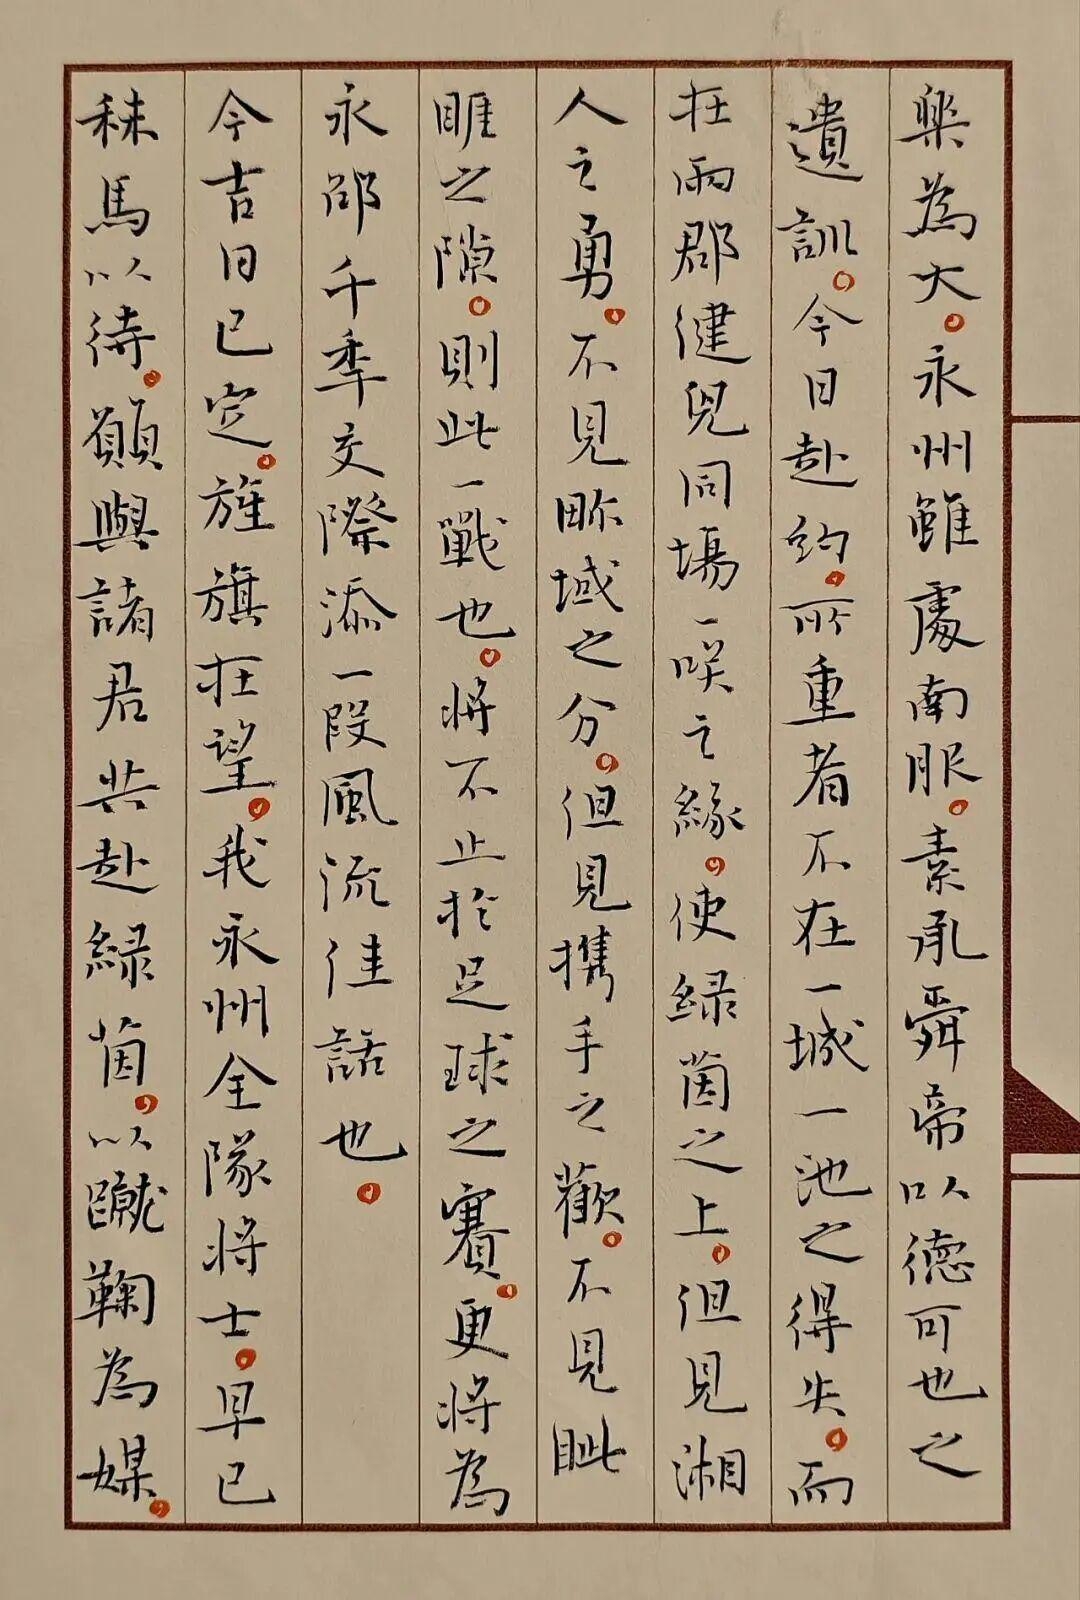 樂為大。永州雖處南服。素承舜帝以德可也之
遺訓。今日赴約。所重者不在一城一池之得失。而
在兩郡健兒同場一咲之緣。使綠茵之上。但見湘
人之勇。不見畛域之分。但見攜手之歡。不見眦
睚之隙。則此一戰也。將不止於足球之賽。更將為
永邵千秊交際添一段風流佳話也。
今吉日已定。旌旗在望。我永州全隊將士。早已
秣馬以待。願與諸君共赴綠茵。以蹴鞠為媒。